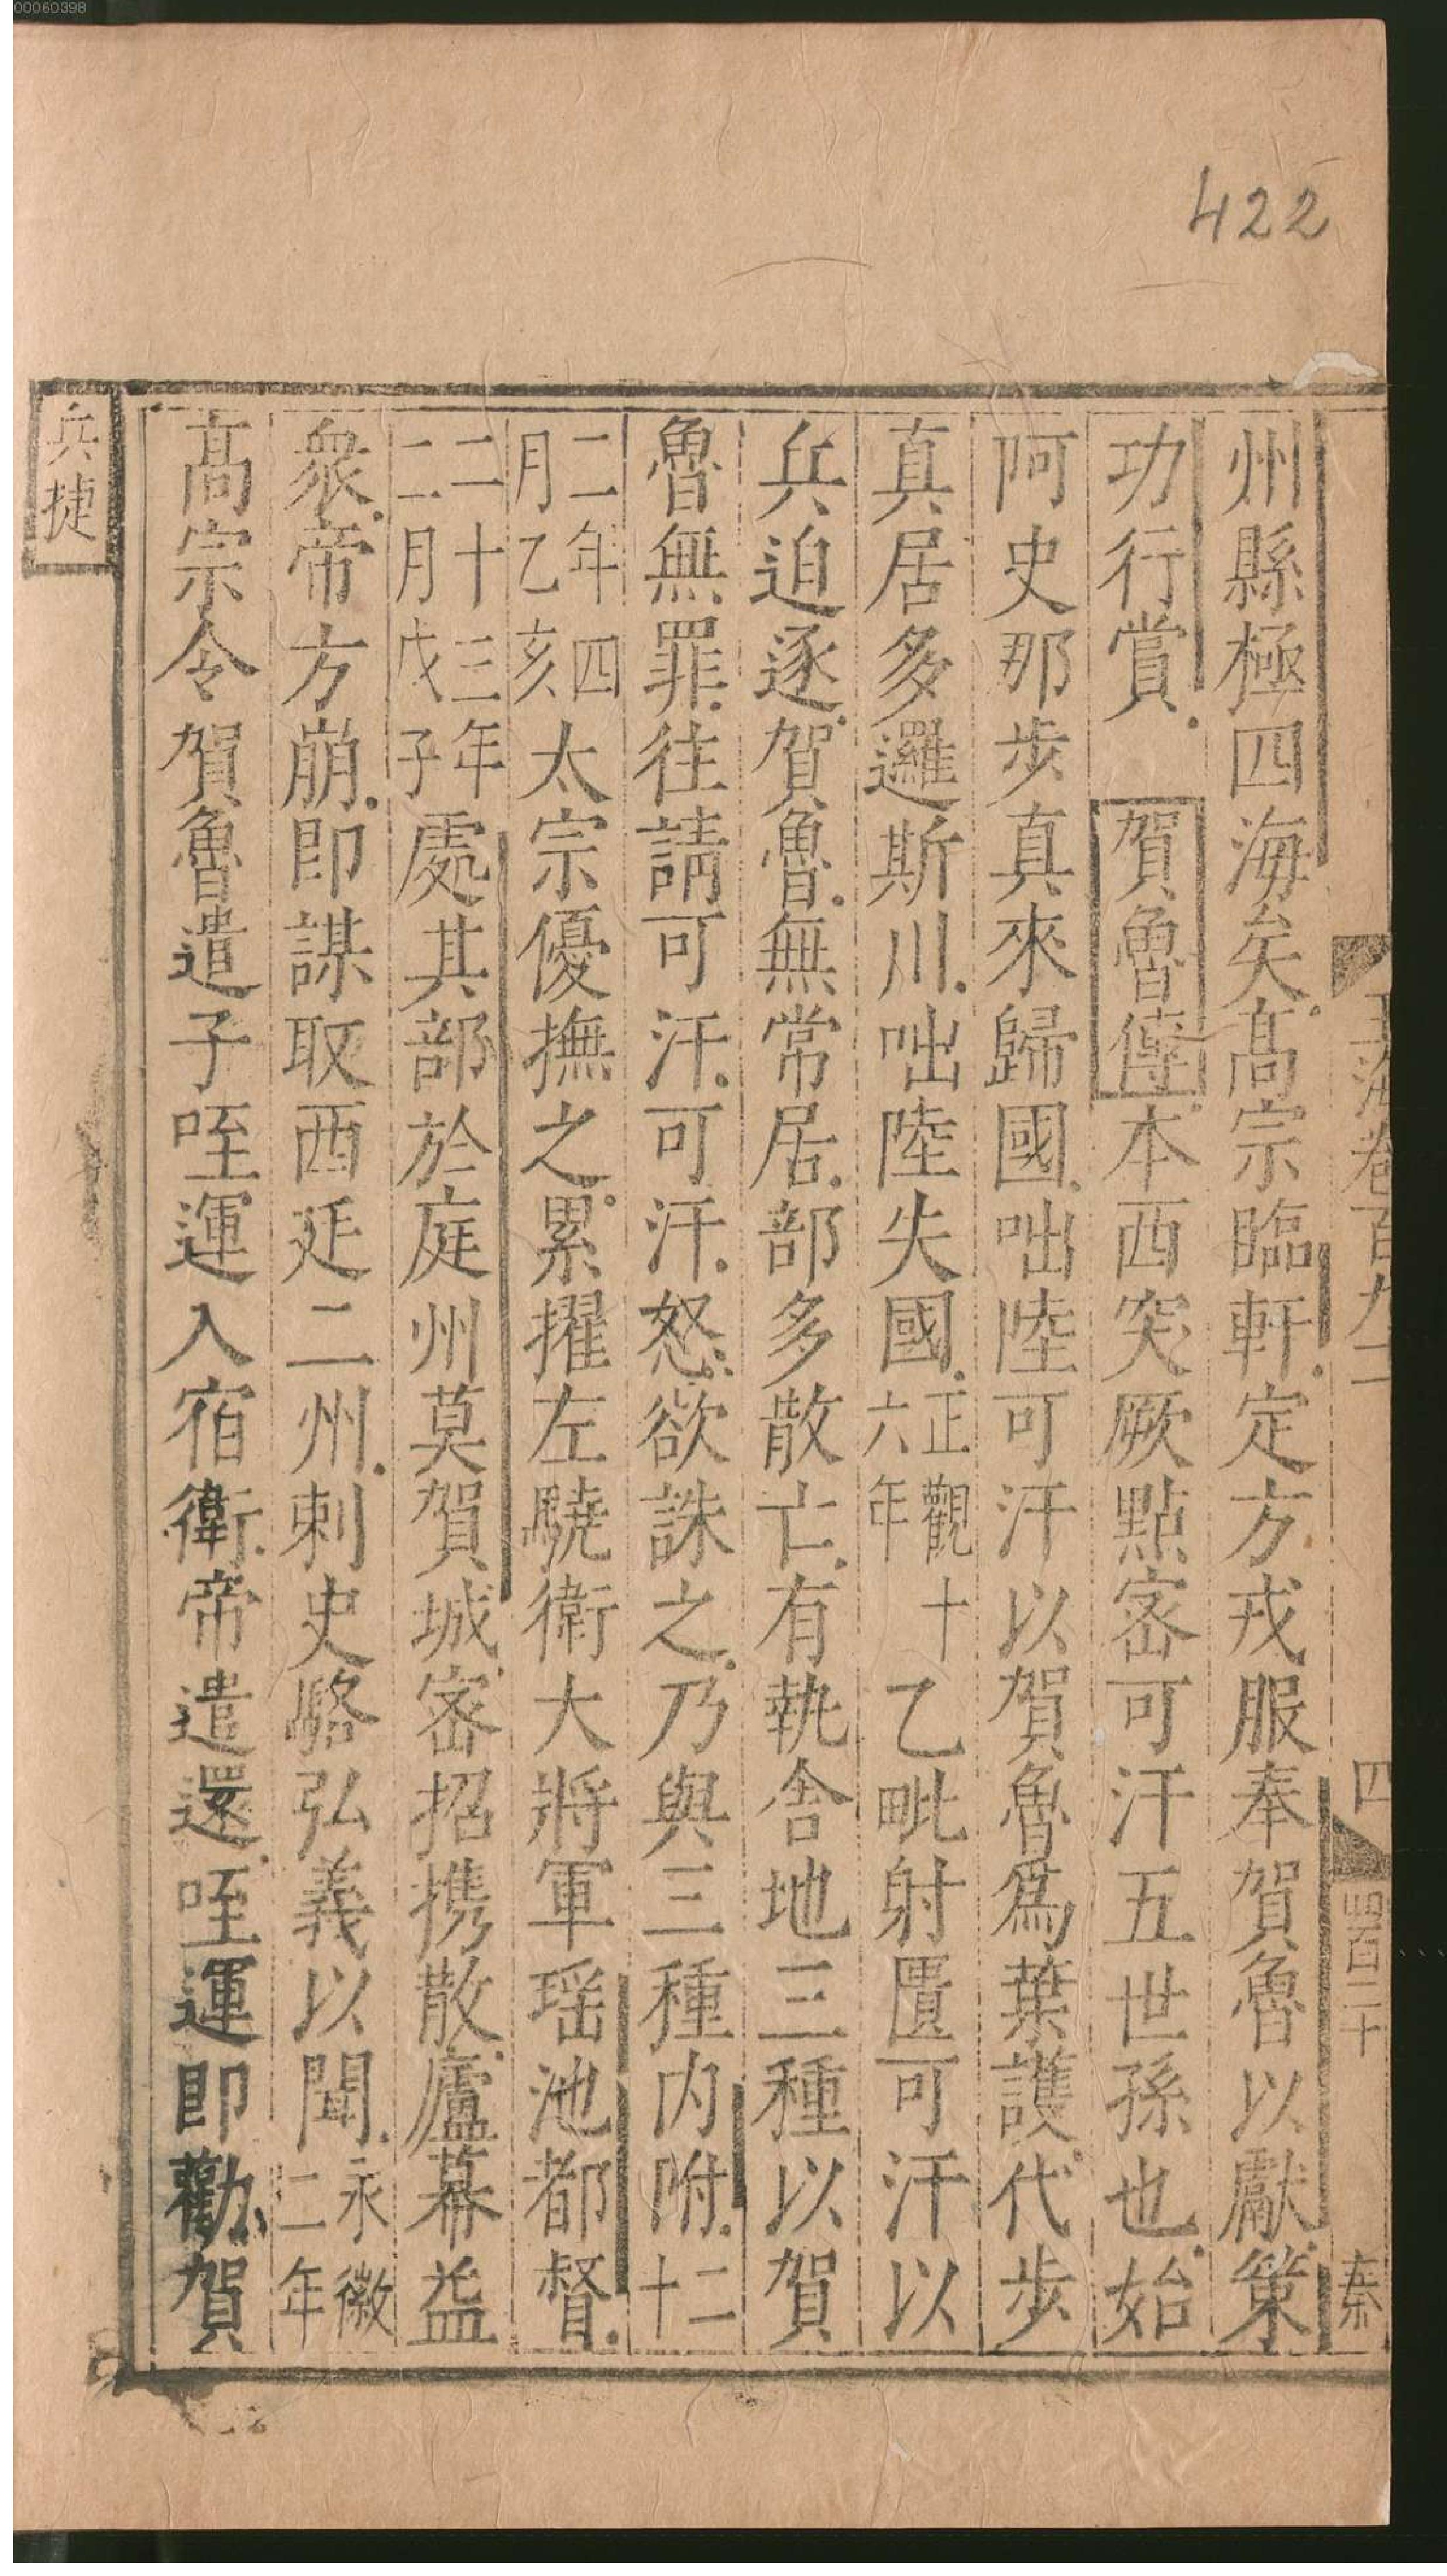 00060398
422
玉海卷百九二　四　四百二十　秦
州縣極四海矣髙宗臨軒定方戎服奉賀魯以獻策
功行賞　賀魯傳本西突厥點宻可汗五世孫也始
阿史那步真來歸國咄陸可汗以賀魯爲葉護代步
真居多邏斯川咄陸失國正觀十六年乙毗射匱可汗以
兵迫逐賀魯無常居部多散亡有執舍地三種以賀
魯無罪往請可汗可汗怒欲誅之乃與三種内附二十
二年四月乙亥太宗優撫之累擢左驍衛大將軍瑶池都督
二十三年二月戊子處其部於庭州莫賀城宻招携散廬幕益
衆帝方崩即謀取西延二州刺史駱弘義以聞永徽二年
髙宗令賀魯遣子咥運入宿衛帝遣還咥運即勸賀
兵捷